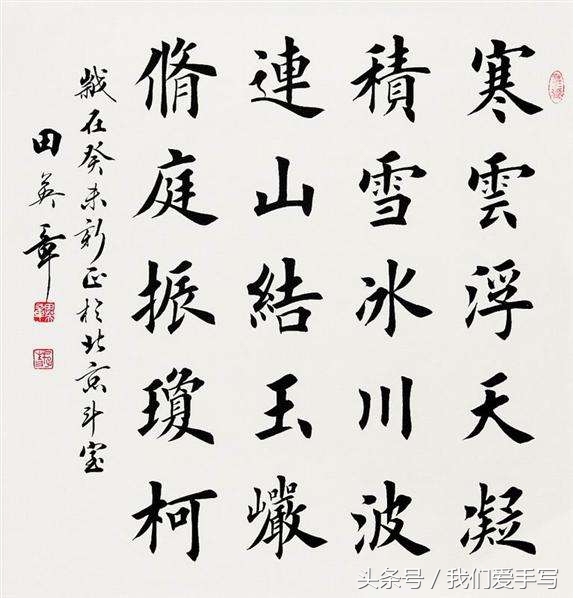 寒雲浮天凝
積雪冰川波
連山結玉巗
脩庭振瓊柯
歲在癸未新正於北京斗室
田英章
头条号 / 我们爱手写